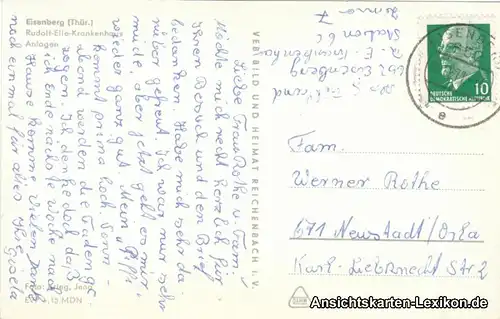 Eisenberg (Thür.)
Rudolf-Elle-Krankenhaus
Anlagen
Liebe Frau Rothe u. Fam.
Möchte mich recht herzlich für
Ihren Besuch und den Brief
bedanken. Habe mich sehr da-
rüber gefreut. Ich war nur sehr
müde, aber jetzt geht es mir
wieder ganz gut. Mein
kommt prima hoch. Sonn-
abend werden die Fäden ge-
zogen. Ich denke doch daß
ich Ende nächste Woche nach
Hause komme. Vielen Dank
noch einmal für alles Ihre Gisela
Foto: Jena
13 MDN
VERBILD UND HEIMAT REICHENBACH I. V.
652 Eisenberg
R. E. Krankenhaus
Station 6c
Zimmer 7
EISENBERG
10
DEUTSCHE
DEMOKRATISCHE REPUBLIK
e
Fam.
Werner Rothe
671 Neustadt/Orla
Karl-Liebknecht Str 2
Ansichtskarten-Lexikon.de